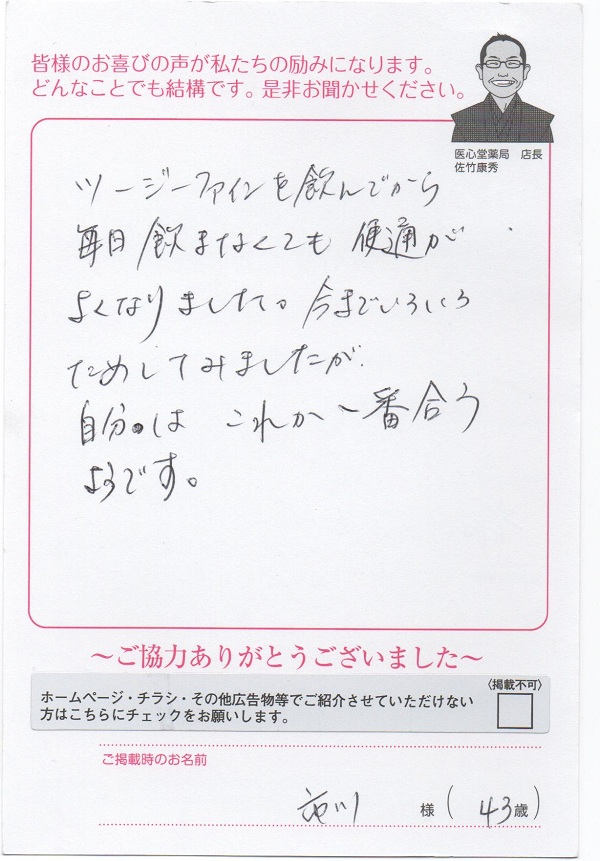 皆様のお喜びの声が私たちの励みになります。
どんなことでも結構です。是非お聞かせください。
医心堂薬局 店長
佐竹康秀
ツージーファインを飲んでから
毎日飲まなくても便通が
よくなりました。今までいろいろ
ためしてみましたが、
自分は これが一番合う
ようです。
〜ご協力ありがとうございました〜
〈掲載不可〉
ホームページ・チラシ・その他広告物等でご紹介させていただけない
方はこちらにチェックをお願いします。
ご掲載時のお名前
川 様(43歳)